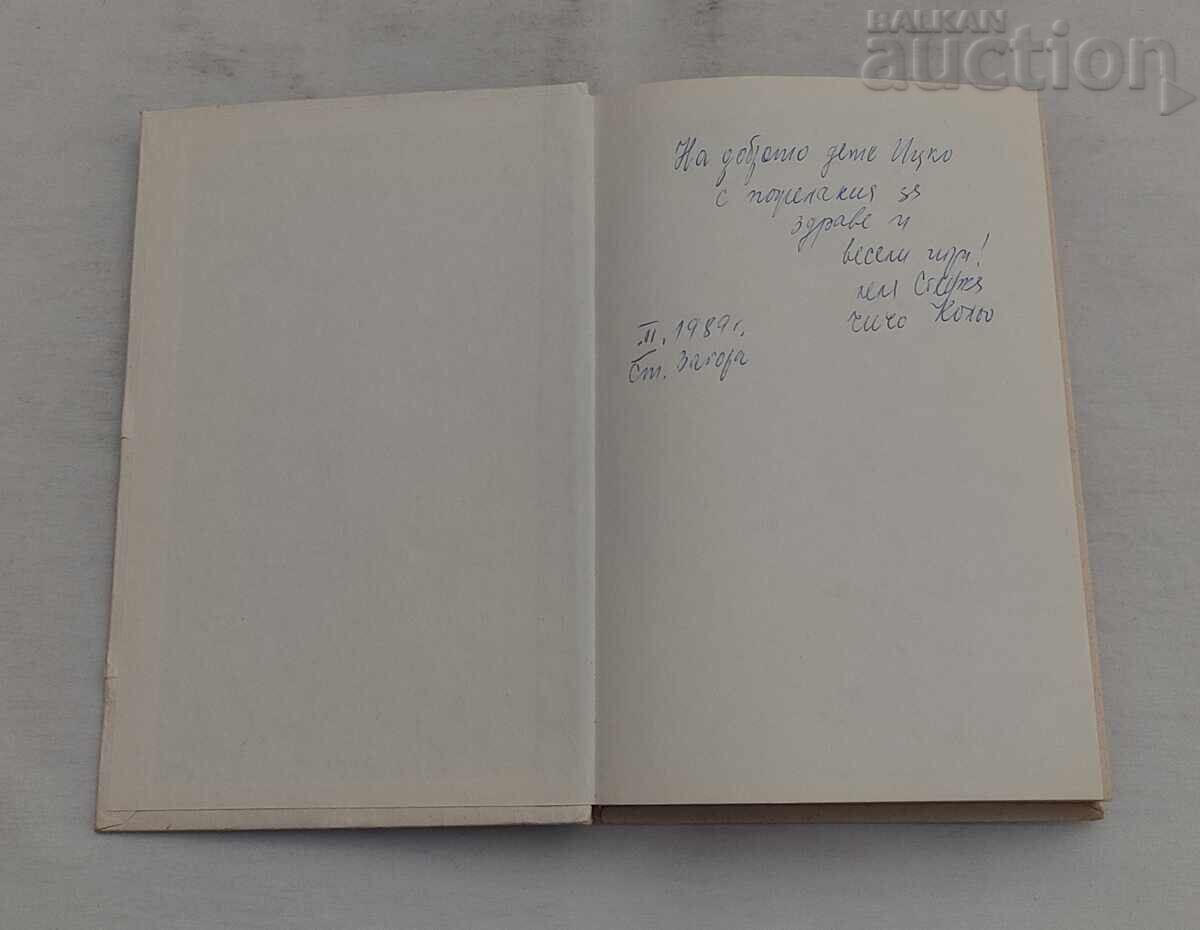 BALKAN
auction
На доброто дете Ицко
с пожелания за
здраве и
весели игри!
леля
чичо Кольо
II. 1989 г.
Ст. Загора